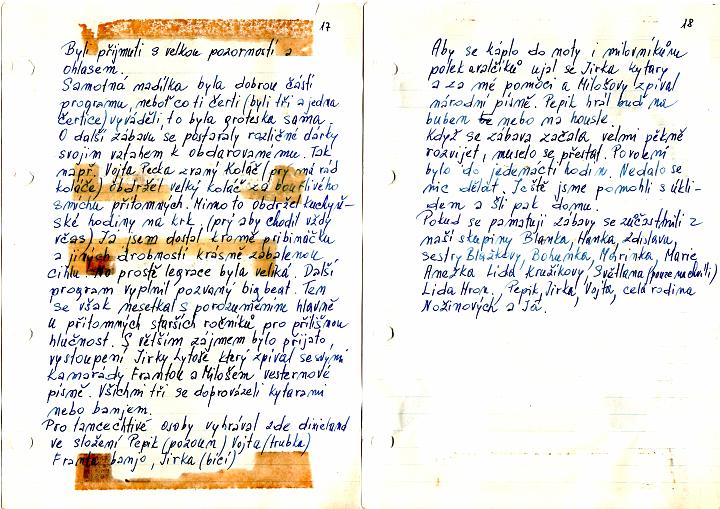 17
Byli přijmuti s velkou pozorností a
ohlasem.
Samotná nadílka byla dobrou částí
programu, neboť co ti čerti (byli tři a jedna
čertice) vyváděli, to byla groteska sama.
O další zábavu se postaraly různé dárky
svojim vztahem k obdarovanému. Tak
např. Vojta Pecka zvaný Koláč (prý má rád
koláče) obdržel velký koláč za bouřlivého
smíchu přítomných. Mimo to obdržel kuchyň-
ské hodiny na krk, (prý aby chodil vždy
včas) Já jsem dostal kromě pribináčku
a jiných drobností krásně zabalenou
cihlu. No prostě legrace byla veliká. Další
program vyplnil pozvaný big beat. Ten
se však nesetkal s porozuměním hlavně
u přítomných starších ročníků pro přílišnou
hlučnost. S větším zájmem bylo přijato,
vystoupení Jirky Lytoše který zpíval se svými
kamarády Frantou a Milošem vesternové
písně. Všichni tři se doprovázeli kytarami
nebo banjem.
Pro tancechtivé osoby vyhrával zde dixieland
ve složení Pepik (pozoun) Vojta (trubka)
Franta banjo, Jirka (bicí)
18
Aby se káplo do noty i milovníkům
polek a valčíků ujal se Jirka kytary
a za mé pomoci a Milošovy zpíval
národní písně. Pepik hrál buď na
buben nebo na housle.
Když se zábava začala velmi pěkně
rozvijet, muselo se přestat. Povolení
bylo do jedenácti hodin. Nedalo se
nic dělat. Ještě jsme pomohli s úkli-
dem a šli pak domu.
Pokud se pamatuji zábavy se zúčastnili z
naší skupiny Blanka, Hanka, Zdislava,
sestry Blažkovy, Bohunka, Mařinka, Marie
Anežka Lida Kružikovy, Světlana (pouze na chvíli)
Lida Hron, Pepik, Jirka, Vojta, celá rodina
Nožinových a Já.